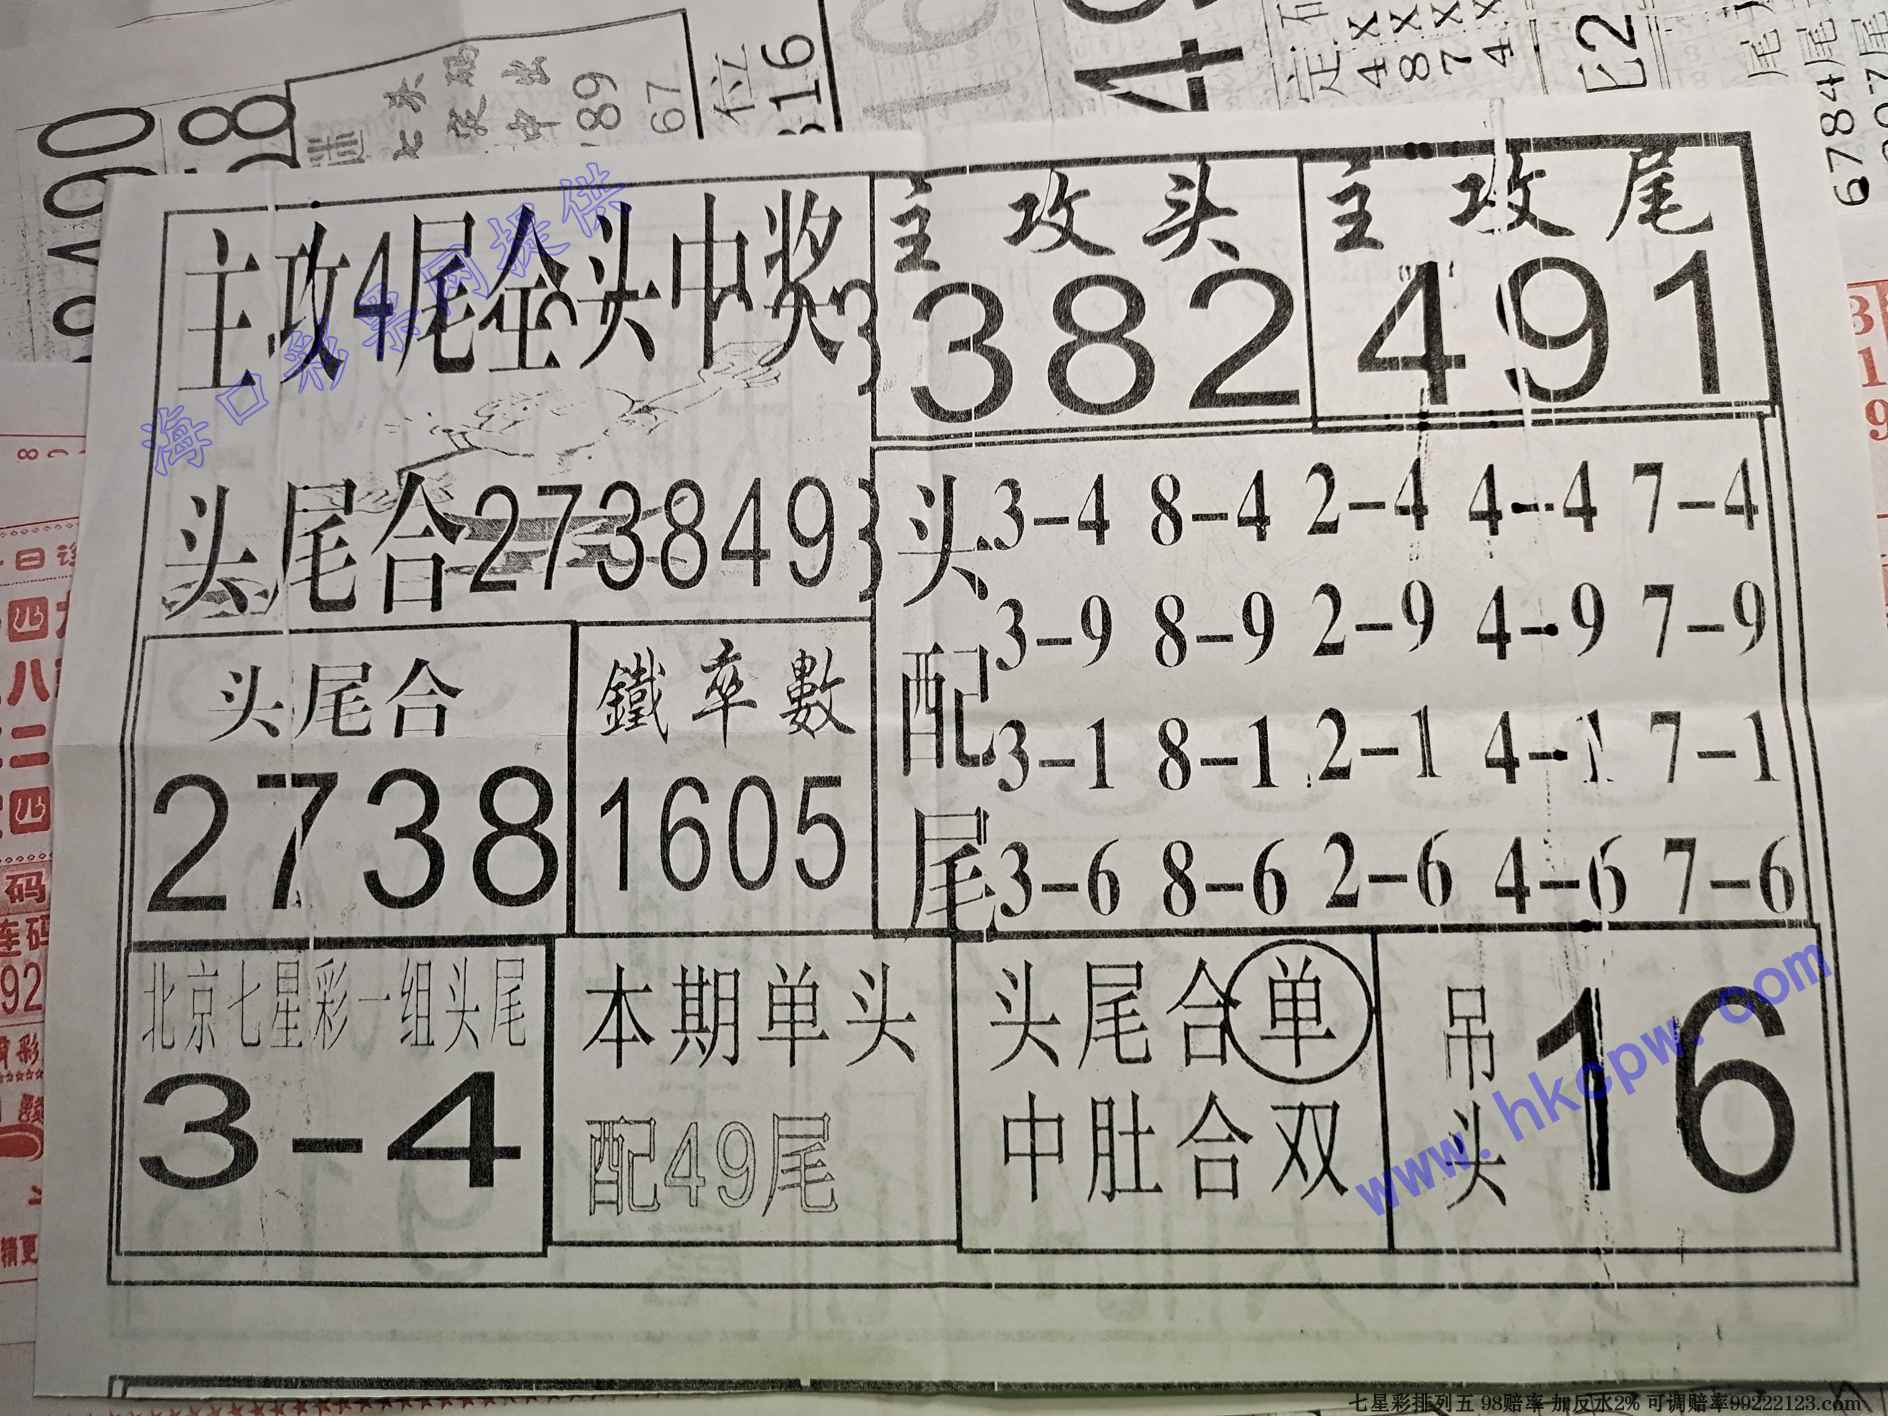 主攻4尾全头中奖
头尾合273849
主攻头
382
主攻尾
491
头配尾
3-4 8-4 2-4 4-4 7-4
3-9 8-9 2-9 4-9 7-9
3-1 8-1 2-1 4-1 7-1
3-6 8-6 2-6 4-6 7-6
头尾合
2738
鐵率數
1605
北京七星彩一组头尾
3-4
本期单头
配49尾
头尾合单
中肚合双
吊头16
海口彩票网提供
www.hkcpw.com
七星彩排列五 98赔率 加反水2% 可调赔率99222123.com